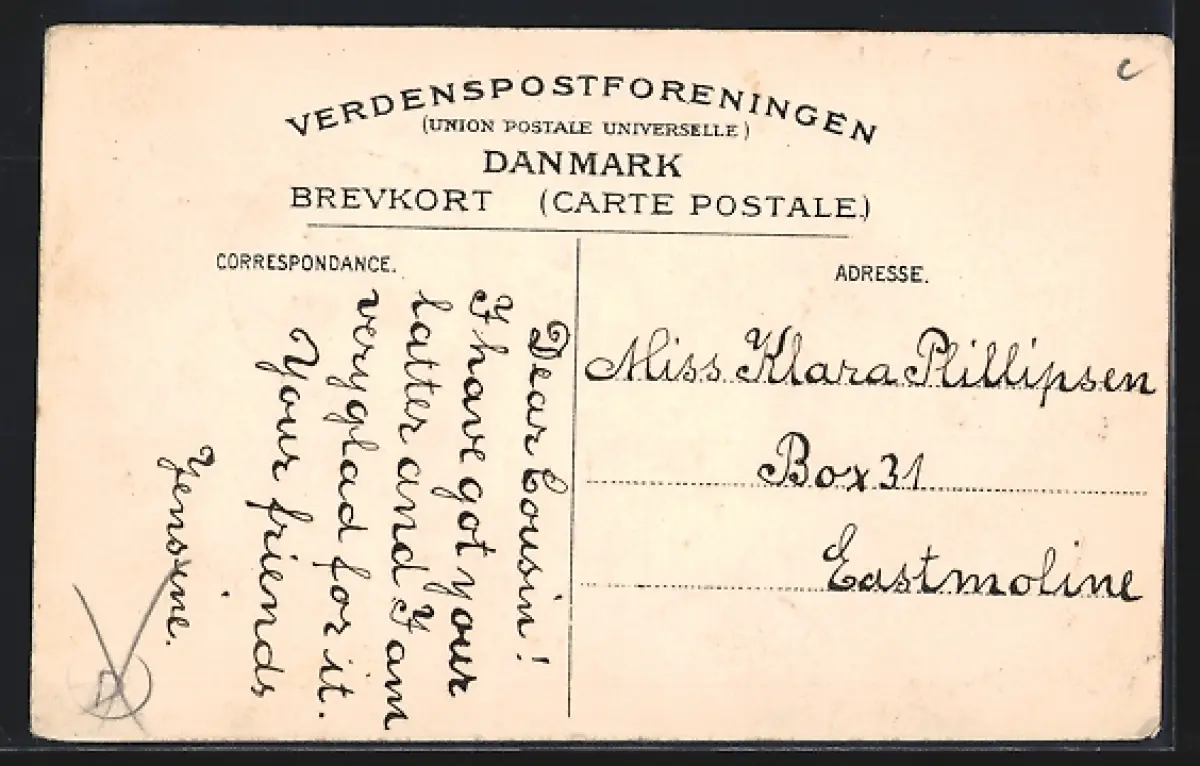 VERDENSPOSTFORENINGEN
(UNION POSTALE UNIVERSELLE)
DANMARK
BREVKORT (CARTE POSTALE)
CORRESPONDANCE.
Dear Cousin!
I have got your
latter and I am
very glad for it.
Your friends
Jensine.
ADRESSE.
Miss Klara Phillipsen
Box 31
Eastmoline